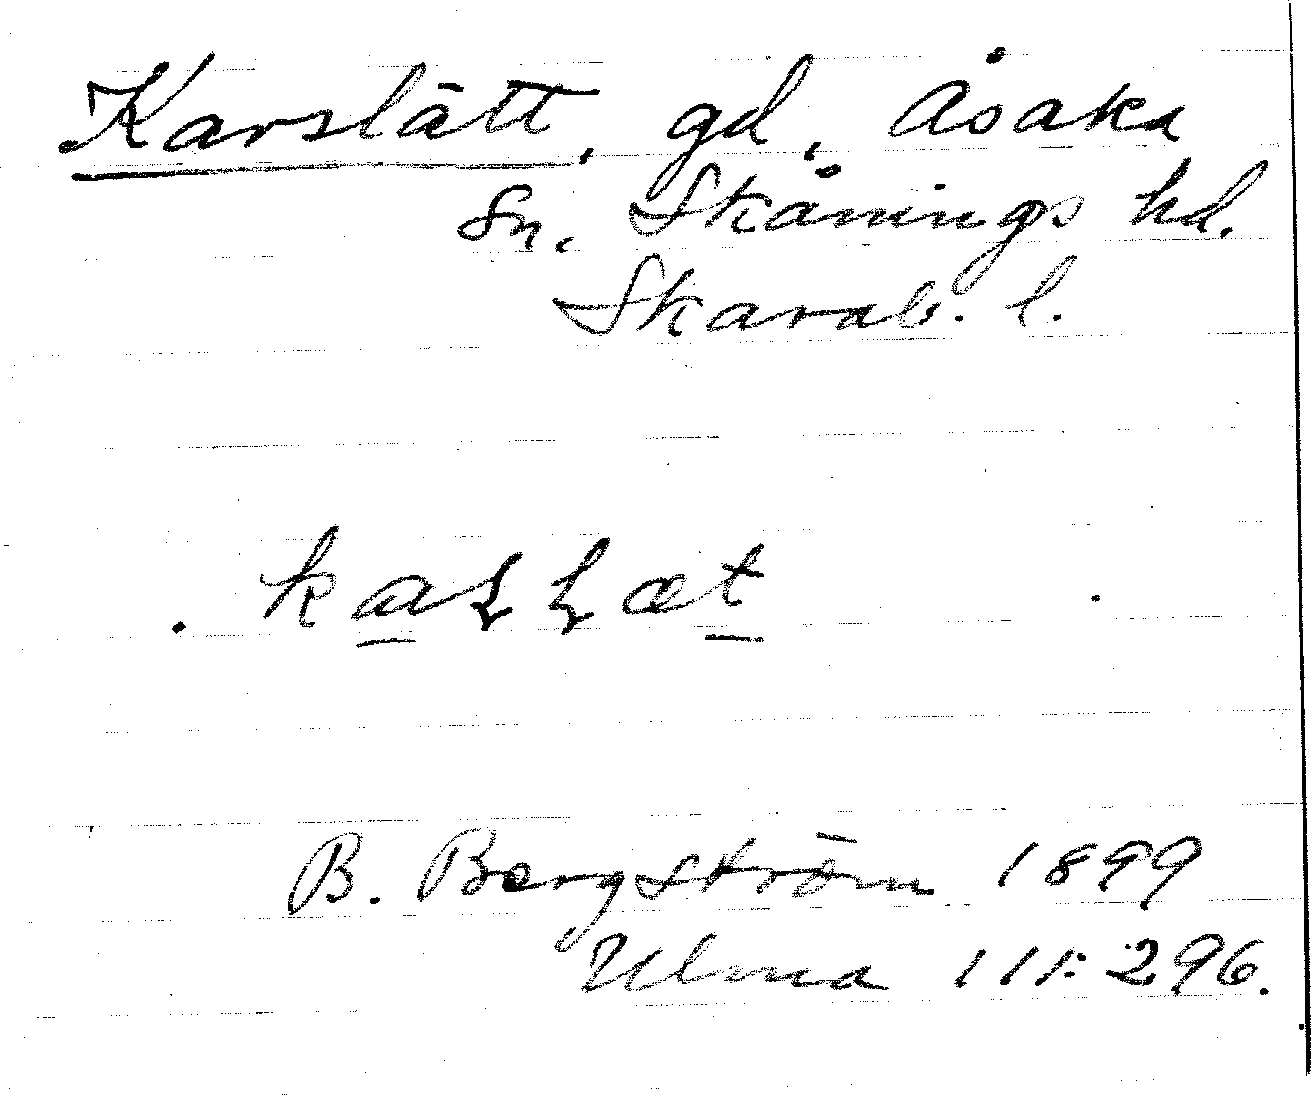 Karslätt, gd, Åsaka
Sn. Skånings hd.
Skarab. l.
B. Bergström 1899
Ulma 111:296.